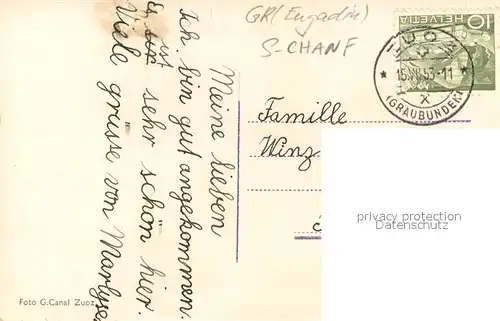 Meine lieben
Ich bin gut angekommen.
Es ist sehr schön hier.
Viele grüsse von Marlyse
Foto G.Canal Zuoz
GR (Engadin)
S-CHANF
HELVETIA
10
ZUOZ
15.VII.53-11
(GRAUBÜNDEN)
Familie
Winz
privacy protection
watermark